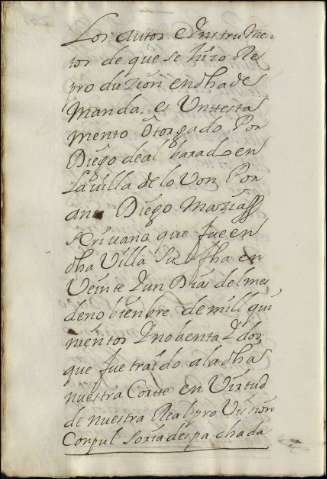 Los autos e Instrumen-
tos de que se hizo Re
produzion en dha de
Manda, es Un testa
mento Otorgado Por
Diego de al barado en
La Villa de lo Von, Por
an Diego Mazias
scrivano que fue en
dha Villa Su fha en
Veinte Iun Dias del mes
de nobienbre de mill qui
nientos I nobenta I dos
que fue traido a la dha
nuestra Corte en Virtud
de nuestra Real pro Vission
Corpul soria despachada